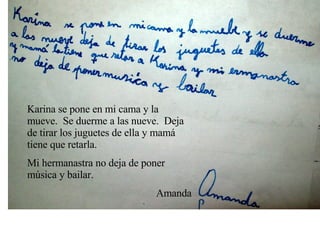 Karina se pone en mi cama y la mueble y se duerme
a las nueve deja de tirar los juguetes de ella
y mamá la tiene que retar a Karina y mi ermanastra
no deja de poner musica y bailar
Karina se pone en mi cama y la
mueve. Se duerme a las nueve. Deja
de tirar los juguetes de ella y mamá
tiene que retarla.
Mi hermanastra no deja de poner
música y bailar.
Amanda
Amanda